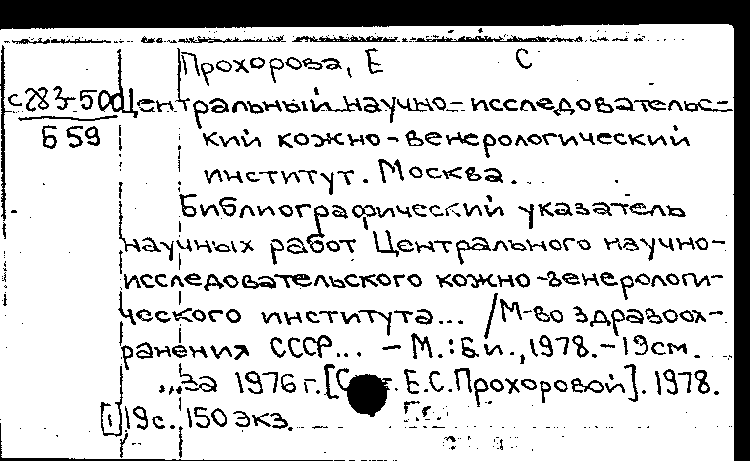 Прохорова, Е С
с283-500 Центральный научно-исследовательс-
Б 59 кий кожно-венерологический
институт. Москва.
Библиографический указатель
научных работ Центрального научно-
исследовательского кожно-венерологи-
ческого института... /М-во здравоох-
ранения СССР... - М.: Б.и., 1978. - 19см.
...за 1976 г. [С Е.С.Прохоровой]. 1978.
[1] 19 с. 150 экз.